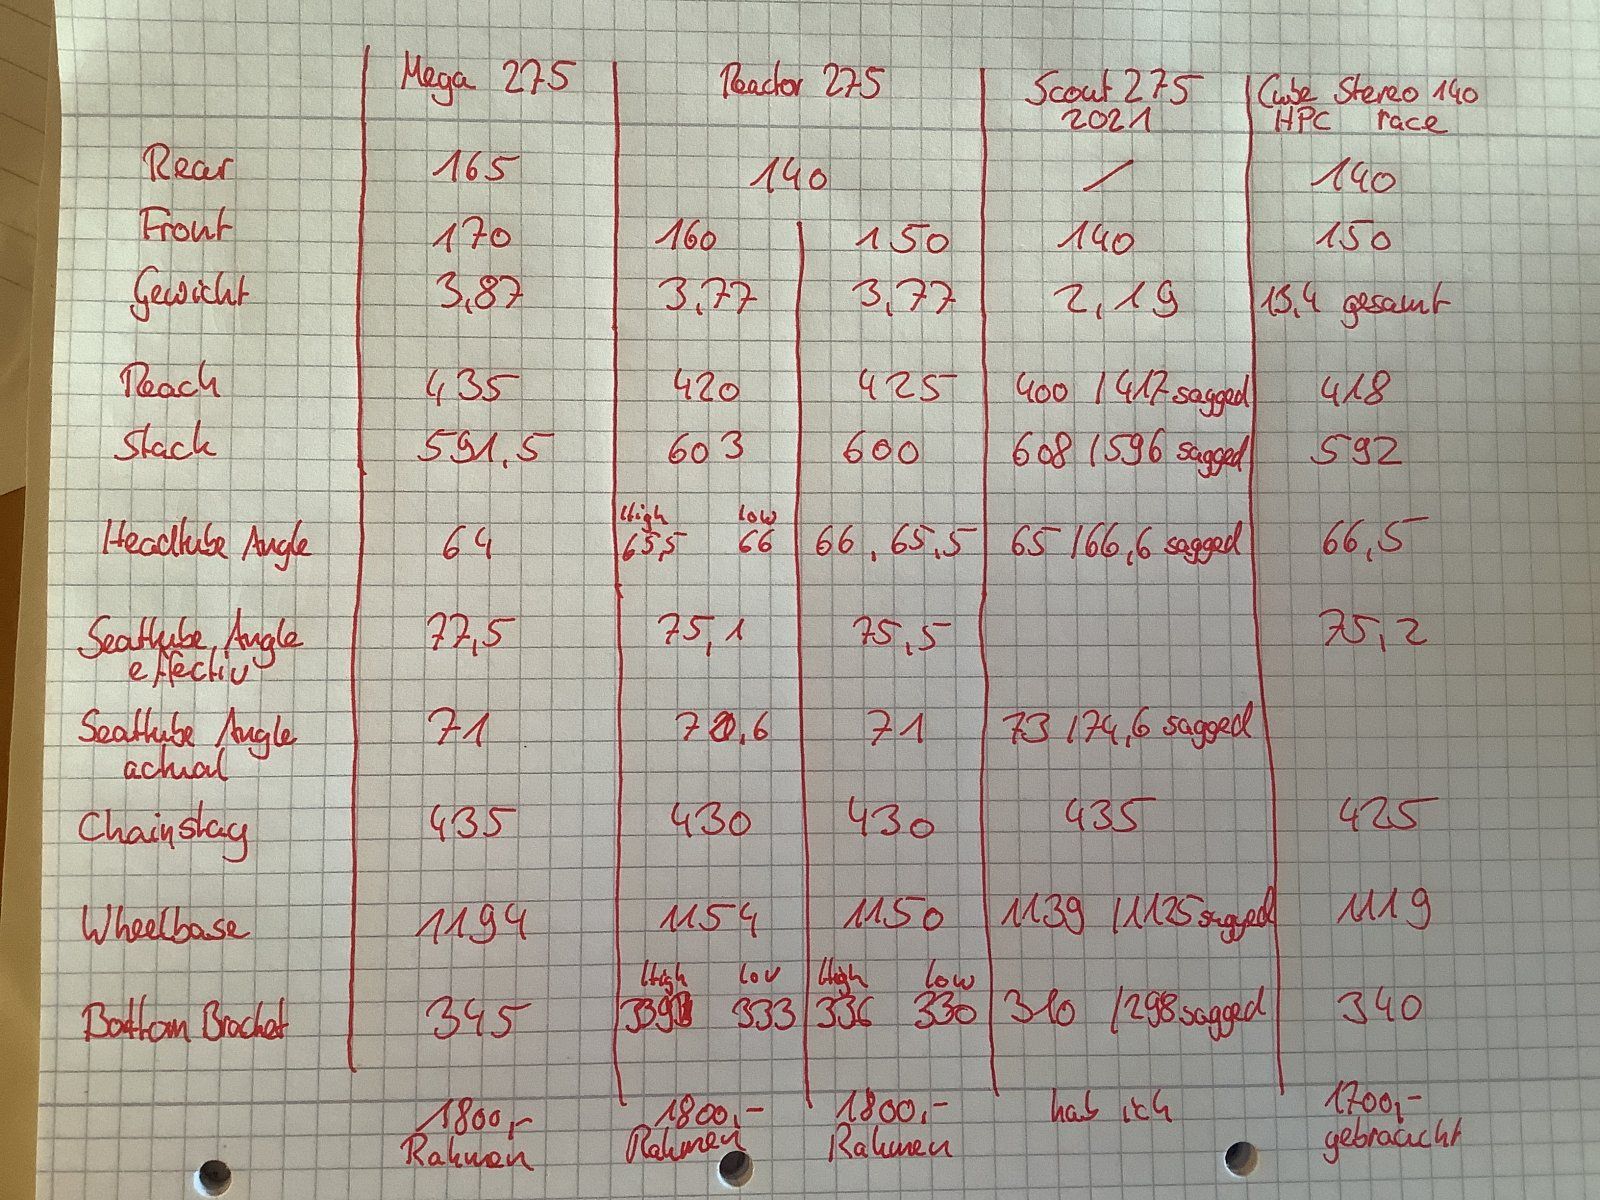 Mega 275 Reactor 275 Scout 275 Cube Stereo 140
2021 HPC race
Rear 165 140 / 140
Front 170 160 150 140 150
Gewicht 3,87 3,77 3,77 2,19 13,4 gesamt
Reach 435 420 425 400 /417 sagged 418
Stack 591,5 603 600 608 /596 sagged 592
High Low
Headtube Angle 64 65,5 66 66, 65,5 65 /66,6 sagged 66,5
Seattube Angle 77,5 75,1 75,5 75,2
effectiv
Seattube Angle 71 70,6 71 73 /74,6 sagged
actual
Chainstay 435 430 430 435 425
Wheelbase 1194 1154 1150 1139 /1125 sagged 1119
High Low High Low
Bottom Bracket 345 339 333 336 330 310 /298 sagged 340
1800,- 1800,- 1800,- hab ich 1700,-
Rahmen Rahmen Rahmen gebraucht